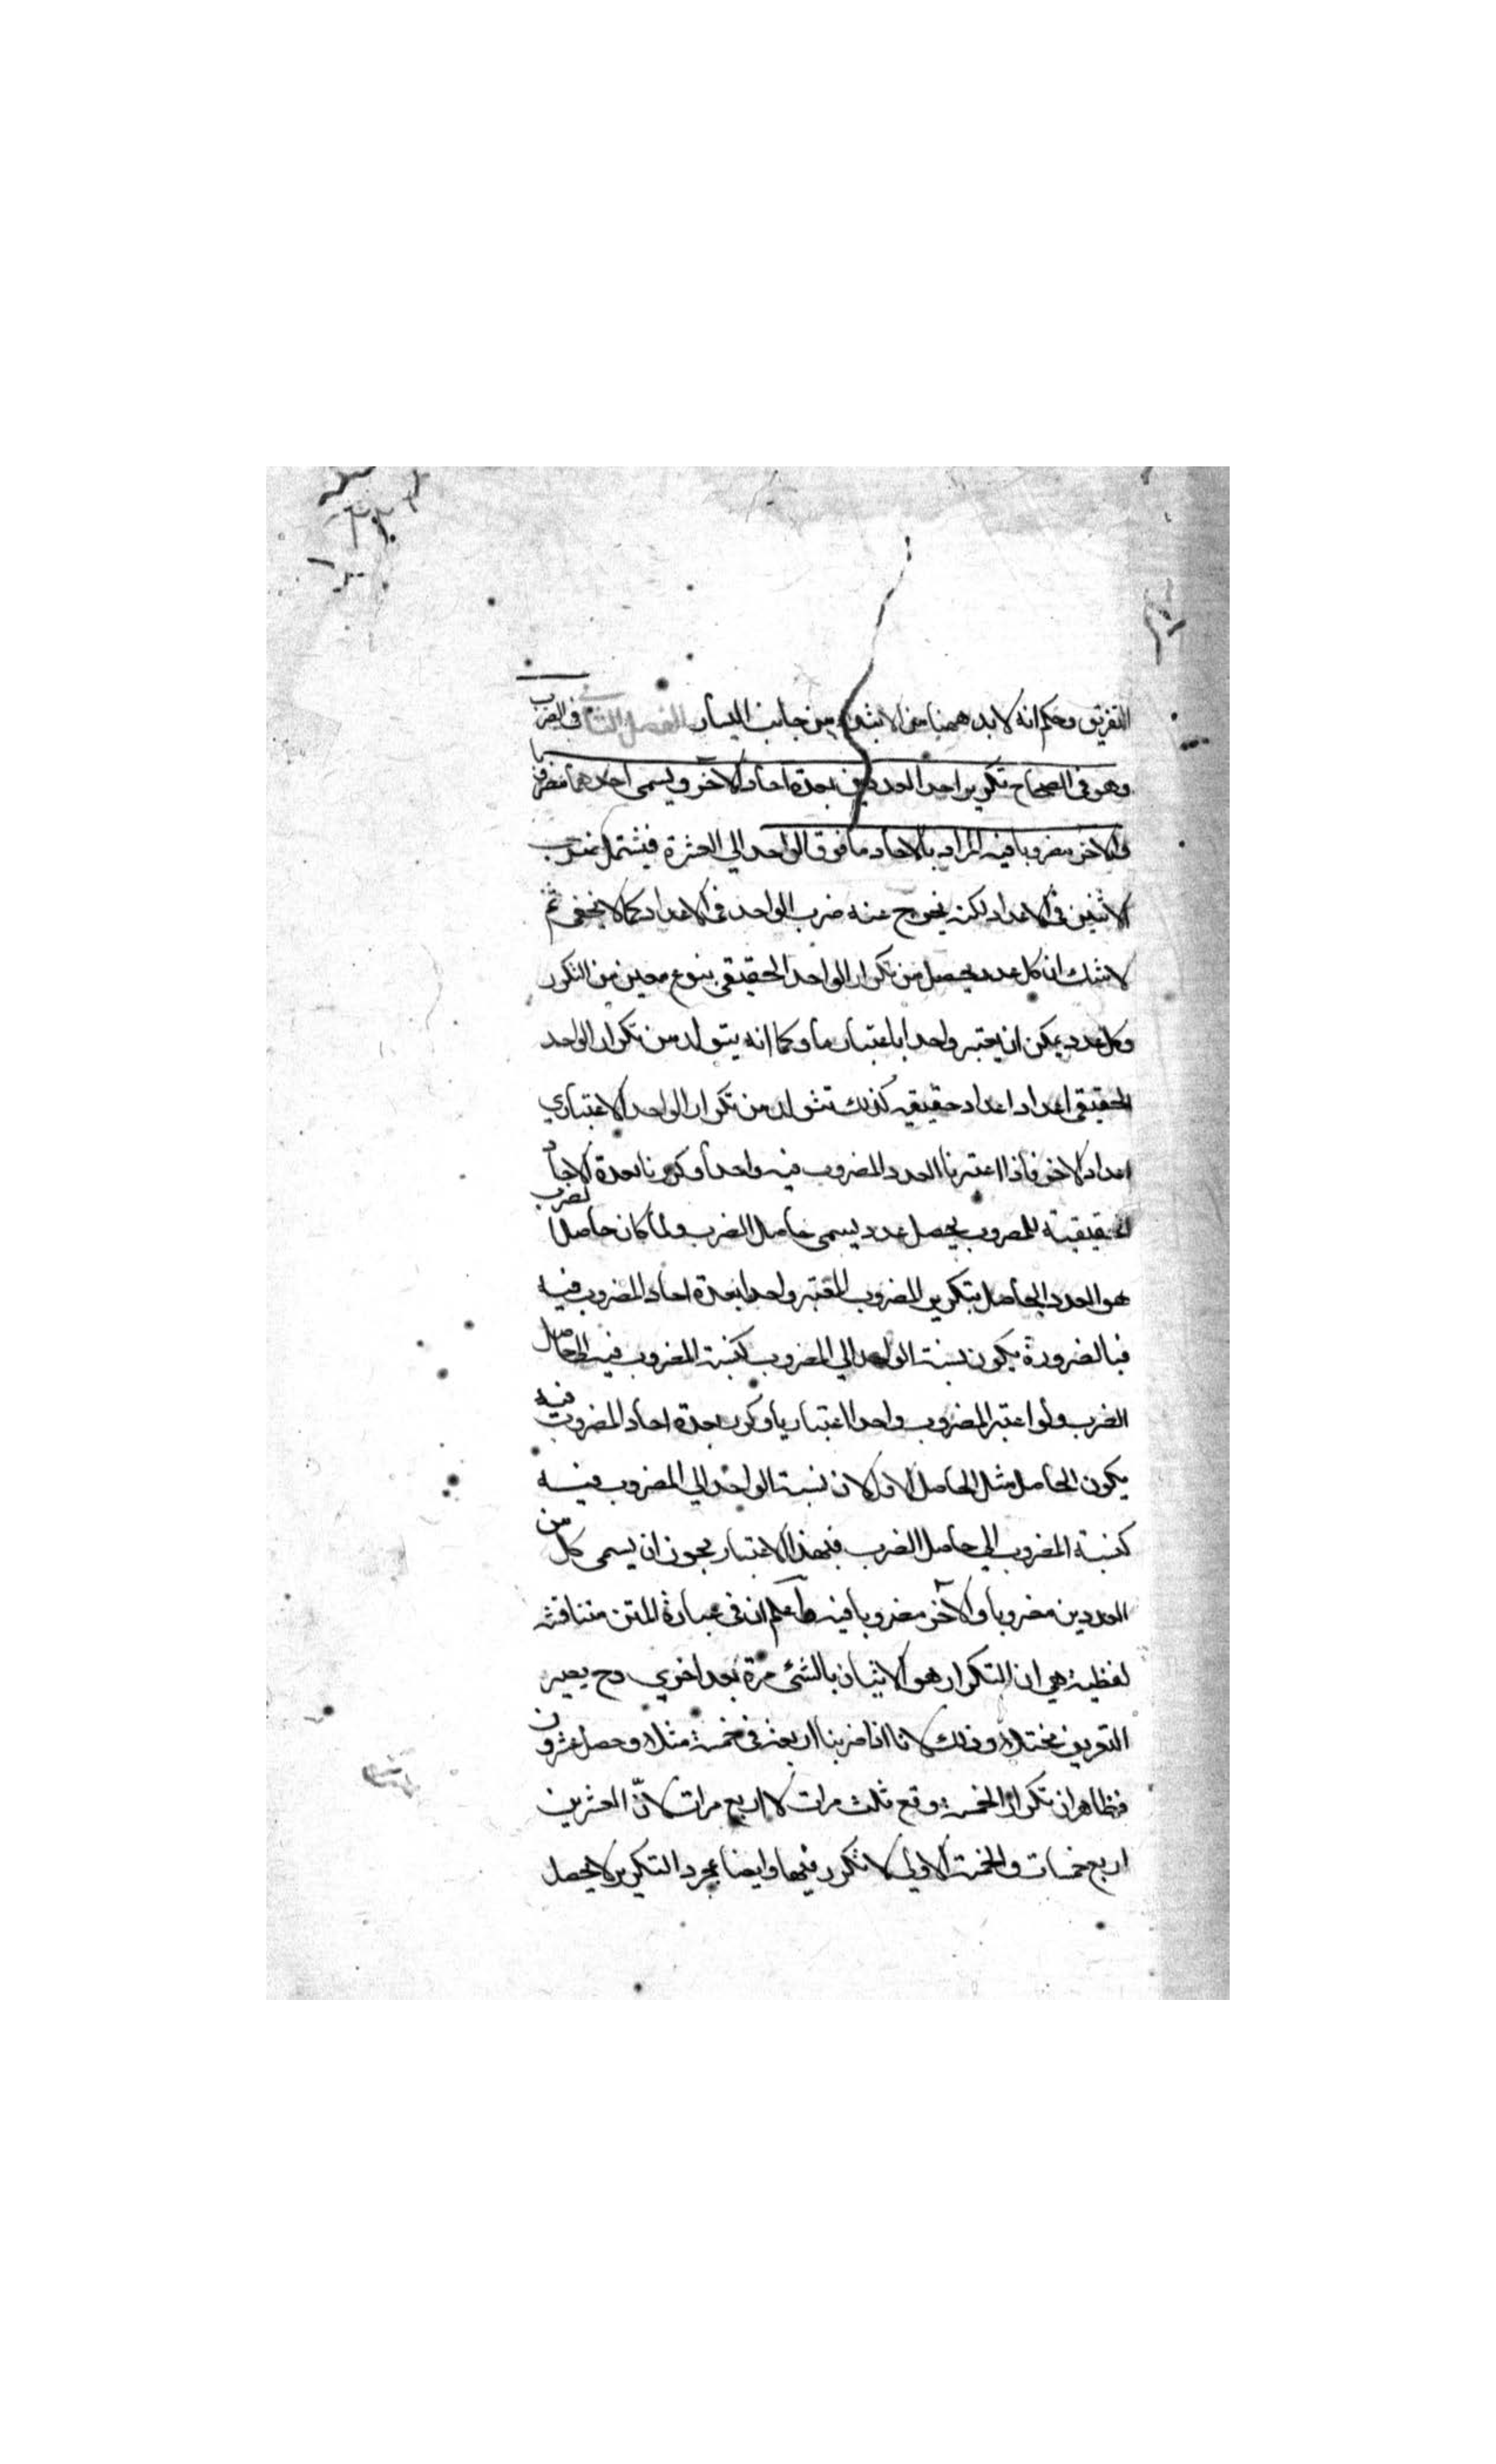 التفريق وحكم انه لا بد ههنا من الابتداء من جانب اليسار الفصل الثاني في الضرب
وهو في الصحاح تكرير احد العددين بعدة احاد الآخر ويسمى احدهما مضروبا
والاخر مضروبا فيه المراد بالاحاد ما فوق الواحد الى العشرة فيشتمل ضرب
الاثنين في الاعداد لكنه يخرج عنه ضرب الواحد في الاعداد كما لا يخفى ثم
لا شك ان كل عدد يحصل من تكرار الواحد الحقيقي بنوع معين من التكرر
وكل عدد يمكن ان يعتبر واحدا باعتبار ما وكما انه يتولد من تكرار الواحد
الحقيقي اعداد اعداد حقيقيه كذلك تتولد من تكرار الواحد الاعتباري
اعداد الاخر فاذا اعتبرنا العدد المضروب فيه واحدا وكررنا بعدة الاحاد
الحقيقية للمضروب يحصل عدد يسمى حاصل الضرب ولما كان حاصل الضرب
هو العدد الحاصل بتكرير المضروب المعتبر واحدا بعدة احاد المضروب فيه
فبالضرورة يكون نسبت الواحد الي المضروب كنسبة المضروب فيه الى حاصل
الضرب ولو اعتبر المضروب واحدا اعتباريا وكرر بعدة احاد المضروب فيه
يكون الحاصل مثل الحاصل الاول لان نسبت الواحد الي المضروب فيه
كنسبة المضروب الي حاصل الضرب فبهذا الاعتبار يجوز ان يسمى كل من
العددين مضروبا والآخر مضروبا فيه واعلم ان في عبارة المتن مناقشه
لفظية هي ان التكرار هو الاتيان بالشئ مرة بعد اخري وح يصير
التعريف مختلا وذلك لانا اذا ضربنا اربعة في خمسة مثلا وحصل عشرون
فظاهر ان تكرار الخمسة وقع ثلث مرات لا اربع مرات لانّ العشرين
اربع خمسات والخمسة الاولي لا تكرر فيها وايضا بمجرد التكرير لا يحصل